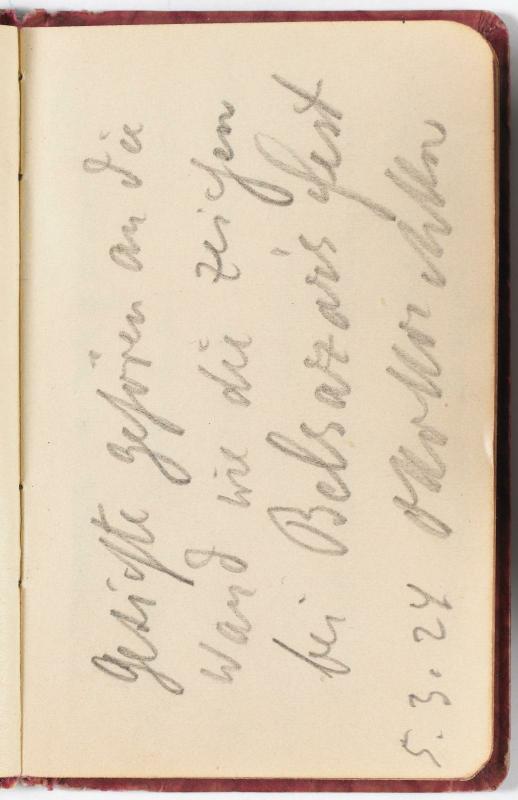 Gesichte gehören an die
wand wie die zeichen
bei Belsazars fest
5.3.24